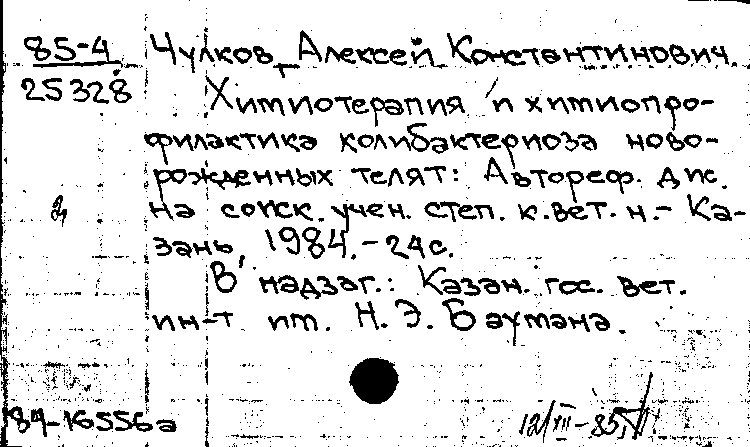 85-4
25328
Чулков, Алексей Константинович.
Химиотерапия и химиопро-
филактика колибактериоза ново-
рожденных телят: Автореф. дис.
на соиск. учен. степ. к.вет.н.- Ка-
зань, 1984.-24с.
В надзаг.: Казан. гос. вет.
ин-т им. Н.Э. Баумана.
84-16556а
12/III-85